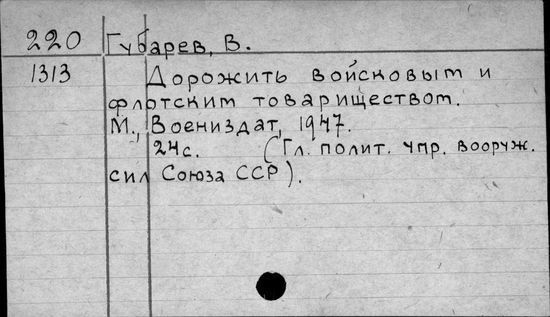 220 Губарев, В.
1313 Дорожить войсковым и
флотским товариществом.
М., Воениздат, 1947.
24с. (Гл. полит. упр. вооруж.
сил Союза ССР).